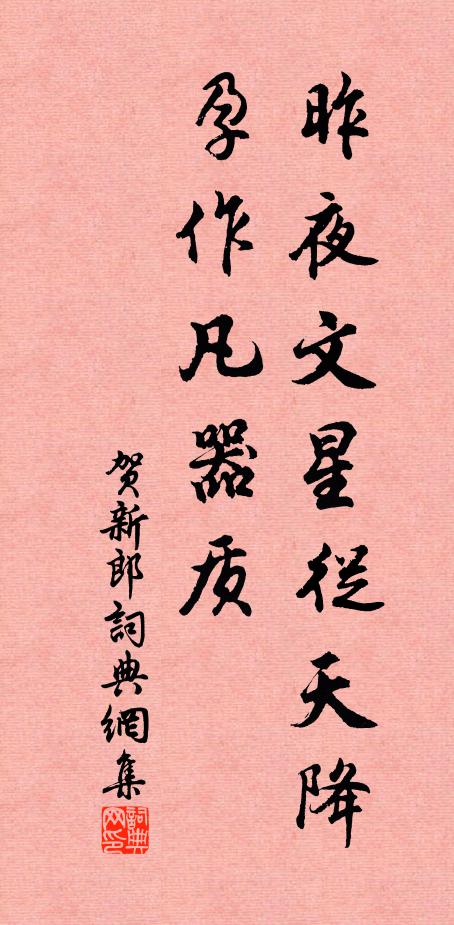 昨夜文星從天降
孕作凡器质
贺新郎詞典網集
詞典网印